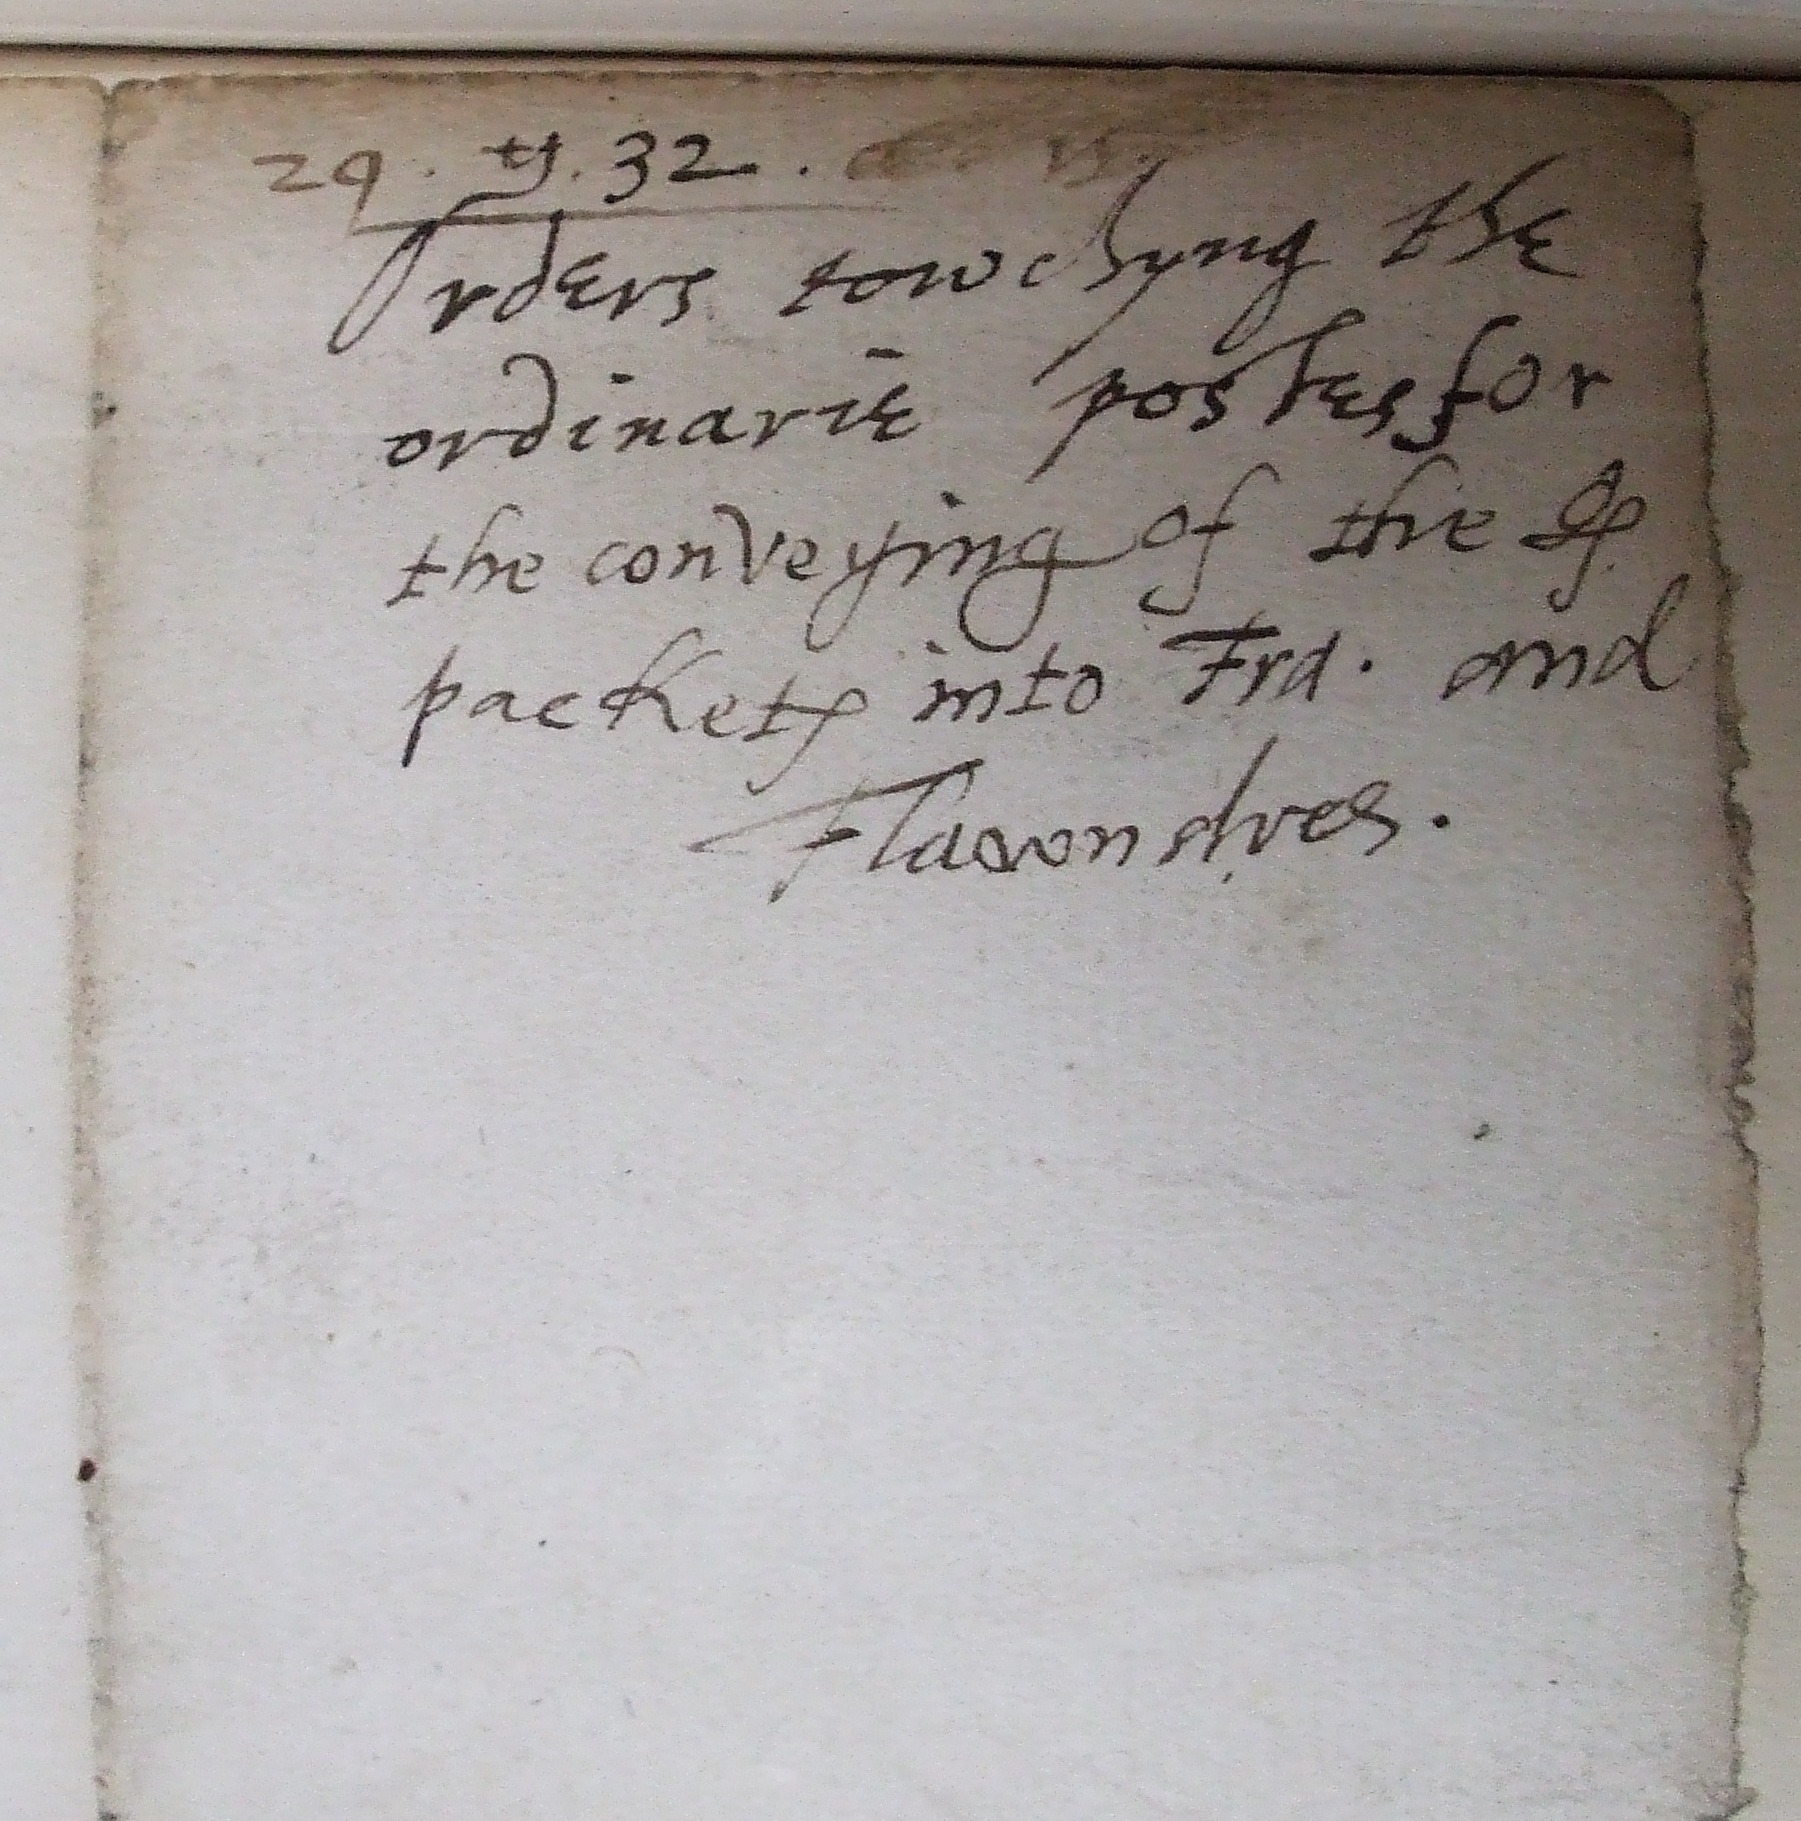 29 . . 32 .
Orders towchyng the
ordinarie postes for
the conveying of the
packetes into Fra. and
Flaundres.